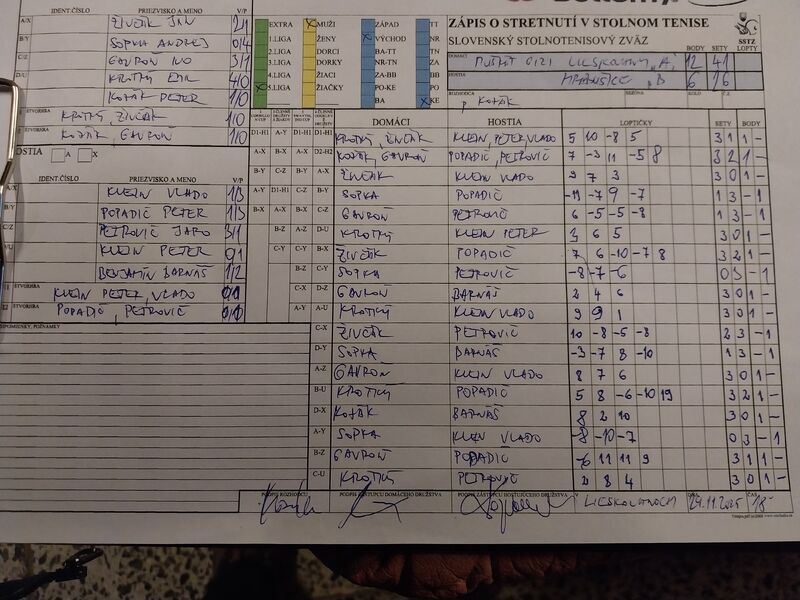 ZÁPIS O STRETNUTÍ V STOLNOM TENISE
SLOVENSKÝ STOLNOTENISOVÝ ZVÄZ
SSTZ
BODY SETY LOPTY
DOMÁCI 12 41
HOSTIA HRANOVNICE "B" 6 26
ROZHODCA P. KOŽÁK SEZÓNA KOLO Č.
EXTRA MUŽI ZÁPAD TT
1.LIGA ŽENY VÝCHOD NR
2.LIGA DORCI BA-TT TN
3.LIGA DORKY NR-TN ZA
4.LIGA ŽIACI ZA-BB BB
5.LIGA ŽIAČKY PO-KE PO
BA KE
IDENT.ČÍSLO PRIEZVISKO A MENO V/P
A/X ŽIVČÁK JÁN 2/1
B/Y SOPKA ANDREJ 0/4
C/Z GAVROŇ IVO 3/1
D/U KROTKÝ EMIL 4/0
KOŽÁK PETER 1/0
ŠTVORHRA KROTKÝ, ŽIVČÁK 1/0
ŠTVORHRA KOŽÁK, GAVROŇ 1/0
HOSTIA A X
IDENT.ČÍSLO PRIEZVISKO A MENO V/P
A/X KLEIN VLADO 1/3
B/Y POPADIČ PETER 1/3
C/Z PETROVIČ JARO 3/1
KLEIN PETER 0/1
BENJAMÍN BARNÁŠ 1/2
ŠTVORHRA KLEIN PETER, VLADO 0/1
ŠTVORHRA POPADIČ, PETROVIČ
PRIPOMIENKY, POZNÁMKY
DOMÁCI HOSTIA LOPTIČKY SETY BODY
KROTKÝ, ŽIVČÁK KLEIN, PETER, VLADO 5 10 -8 5 3 1 1 -
KOŽÁK, GAVROŇ POPADIČ, PETROVIČ 7 -3 11 -5 8 3 2 1 -
ŽIVČÁK KLEIN VLADO 9 7 3 3 0 1 -
SOPKA POPADIČ -11 -7 9 -7 1 3 - 1
GAVROŇ PETROVIČ 6 -5 -5 -8 1 3 - 1
KROTKÝ KLEIN PETER 3 6 5 3 0 1 -
ŽIVČÁK POPADIČ 7 6 -10 -7 8 3 2 1 -
SOPKA PETROVIČ -8 -7 -6 0 3 - 1
GAVROŇ BARNÁŠ 2 4 6 3 0 1 -
KROTKÝ KLEIN VLADO 9 9 1 3 0 1 -
C-X ŽIVČÁK PETROVIČ 10 -8 -5 -8 2 3 - 1
D-Y SOPKA BARNÁŠ -3 -7 8 -10 1 3 - 1
A-Z GAVROŇ KLEIN VLADO 8 7 6 3 0 1 -
B-U KROTKÝ POPADIČ 5 8 -6 -10 19 3 2 1 -
D-X KOŽÁK BARNÁŠ 8 2 10 3 0 1 -
A-Y SOPKA KLEIN VLADO -8 -10 -7 0 3 - 1
B-Z GAVROŇ POPADIČ -6 11 11 9 3 1 1 -
C-U KROTKÝ PETROVIČ 2 8 4 3 0 1 -
PODPIS ROZHODCU PODPIS ZÁSTUPCU DOMÁCEHO DRUŽSTVA PODPIS ZÁSTUPCU HOSŤUJÚCEHO DRUŽSTVA V LIESKOVANOCH DŇA 29.11.2025 ČAS 18-